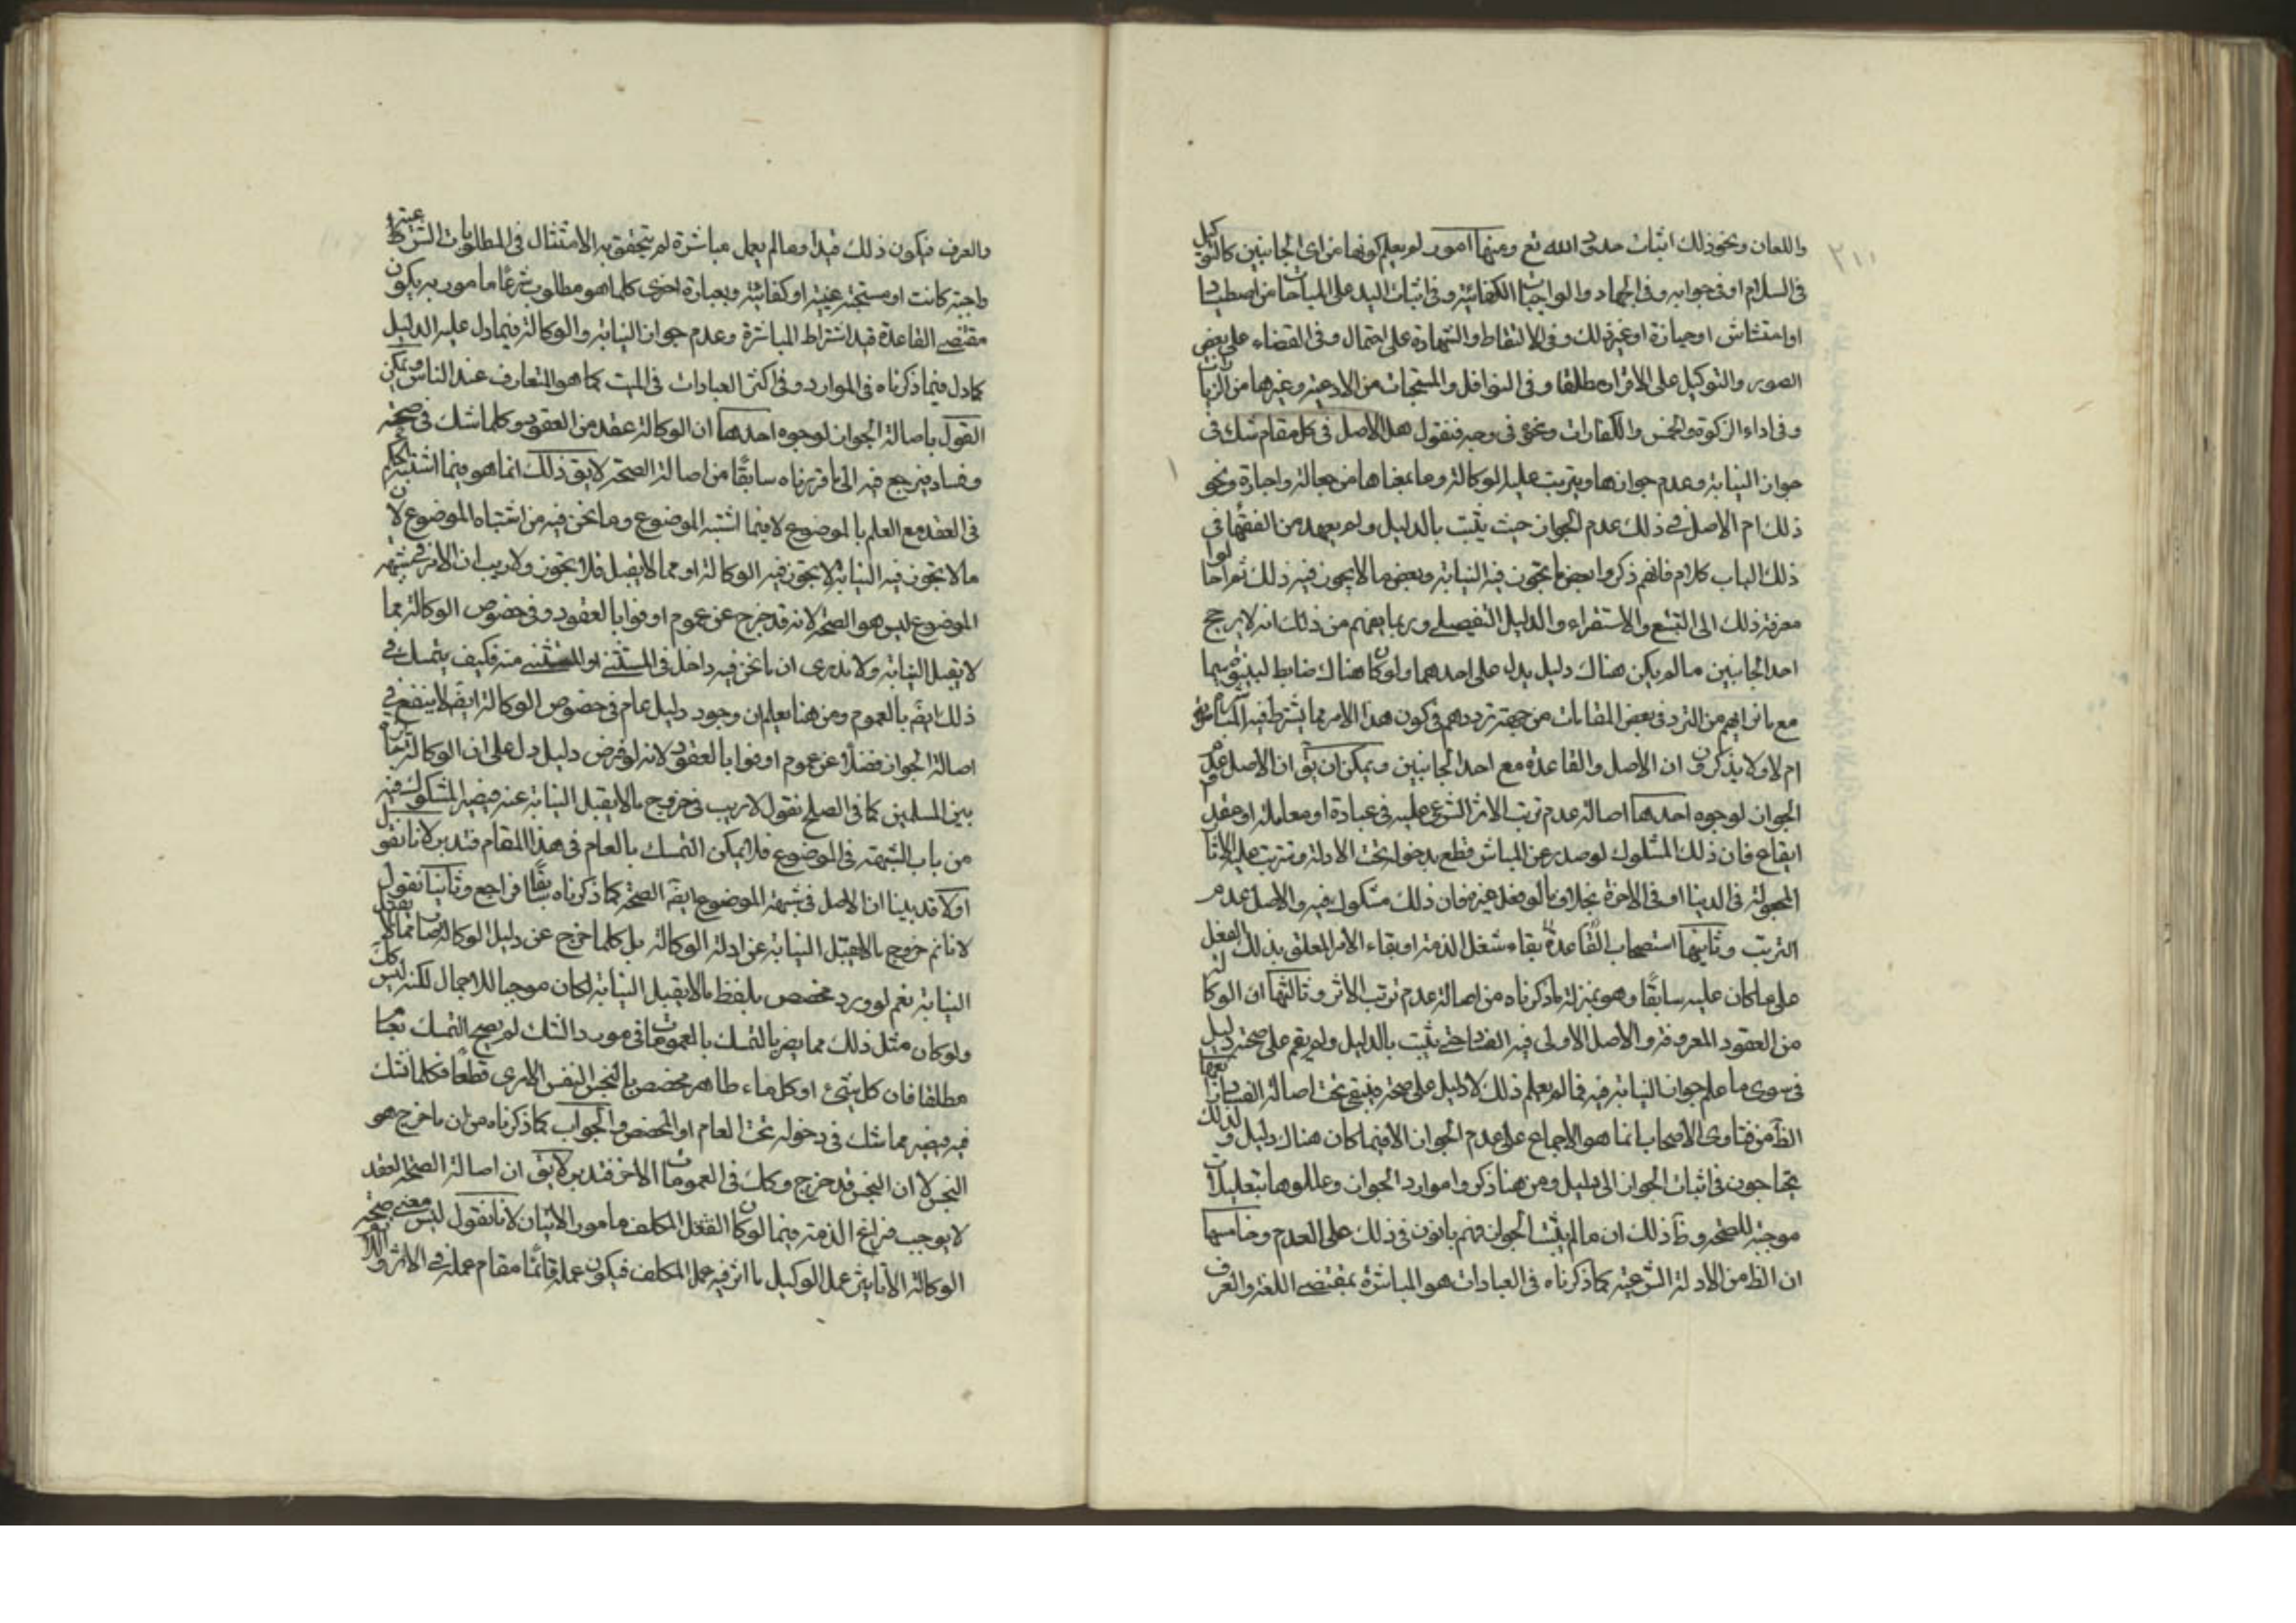 ٢١١
واللعان ونحو ذلك اثبات حدود الله تع ومنها امور لم يعلم كونها من اى الجانبين كالتوكيل
فى السلام او فى جوابه وفى الجهاد والواجبات الكفائية وفى اثبات اليد على المباحات من اصطياد
او احتشاش او حيازة او غير ذلك وفى الالتقاط والشهادة على احتمال وفى القضاء على بعض
الصور والتوكيل على الاقرار مطلقا وفى النوافل والمستحبات من الادعية وغيرها من الزيارات
وفى اداء الزكوة والخمس والكفارات ونحو فى وجه فنقول هل الاصل فى كل مقام شك فى
جواز النيابة وعدم جوازها ويترتب عليه الوكالة وما بمعناها من جعالة واجارة ونحو
ذلك ام الاصل فى ذلك عدم الجواز حيث يثبت بالدليل ولم يعهد من الفقهاء فى
ذلك الباب كلام فانهم ذكروا بعض ما يجوز فيه النيابة وبعض ما لا يجوز فيه ذلك ثم احالوا
معرفة ذلك الى التتبع والاستقراء والدليل التفصيلى وربما يفهم من ذلك انه لا يرجح
احد الجانبين ما لم يكن هناك دليل يدل على احدهما ولو كان هناك ضابط لبينوه سيما
مع ما نراهم من التردد فى بعض المقامات من جهة ترددهم فى كون هذا الامر مما يشترط فيه المباشرة
ام لا ولا يذكرون ان الاصل والقاعدة مع احد الجانبين ويمكن ان يق ان الاصل عدم
الجواز لوجوه احدها اصالة عدم ترتب الاثر الشرعى عليه فى عبادة او معاملة او عقد او
ايقاع فان ذلك المشكوك لو صدر عن المباشر قطع بدخوله تحت الادلة وترتب عليه الاثار
المجعولة فى الدنيا او فى الاخرة بخلاف ما لو فعل غيره فان ذلك مشكوك فيه والاصل عدم
الترتب وثانيها استصحاب القاعدة بقاء شغل الذمة او بقاء الامر المعلق بذلك الفعل
على ما كان عليه سابقًا وهو بمنزلة ما ذكرناه من اصالة عدم ترتب الاثر وثالثها ان الوكالة
من العقود المعروفة والاصل الاولى فيه الفساد حتى يثبت بالدليل ولم يقم على صحته دليل
فى سوى ما علم جواز النيابة فيه فما لم يعلم ذلك لا دليل على صحته فيبقى تحت اصالة الفساد ورابعها ان
الظ من فتاوى الاصحاب انما هو الاجماع على عدم الجواز الا فيما كان هناك دليل ولذلك
يحتاجون فى اثبات الجواز الى دليل ومن هنا ذكروا موارد الجواز وعللوها بتعليلات
موجبة للصحة وظ ذلك ان ما لم يثبت الجواز فهم بانون فى ذلك على العدم وخامسها
ان الظ من الادلة الشرعية كما ذكرناه فى العبادات هو المباشرة بمقتضى اللغة والعرف
والعرف فيكون ذلك قيدا وما لم يعمل مباشرة لم يتحقق به الامتثال فى المطلوبات الشرعية
واجبة كانت او مستحبة عينية او كفائية وبعبارة اخرى كلما هو مطلوب شرعًا مامور به يكون
مقتضى القاعدة فيه اشتراط المباشرة وعدم جواز النيابة والوكالة فيما دل عليه الدليل
كما دل فيما ذكرناه فى الموارد وفى اكثر العبادات فى الميت كما هو المتعارف عند الناس ويمكن
القول باصالة الجواز لوجوه احدها ان الوكالة عقد من العقود وكلما شك فى صحته
وفساده يرجع فيه الى ما قررناه سابقًا من اصالة الصحة لا يق ذلك انما هو فيما اشتبه الحكم
فى العقد مع العلم بالموضوع لا فيما اشتبه الموضوع وما نحن فيه من اشتباه الموضوع لان
ما لا يجوز فيه النيابة لا يجوز فيه الوكالة او مما لا يقبل فلا يجوز ولا ريب ان الاثر فى شبهة
الموضوع ليس هو الصحة لانه قد خرج عن عموم اوفوا بالعقود وفى خصوص الوكالة مما
لا يقبل النيابة ولا ندرى ان ما نحن فيه داخل فى المستثنى او المستثنى منه فكيف يتمسك فى
ذلك ايضً بالعموم ومن هنا يعلم ان وجود دليل عام فى خصوص الوكالة ايضً لا ينفع فى
اصالة الجواز فضلاً عن عموم اوفوا بالعقود لانه لو فرض دليل دل على ان الوكالة جائزة
بين المسلمين كما فى الصلح نقول لا ريب فى خروج ما لا يقبل النيابة عنه فيصير المشكوك فيه
من باب الشبهة فى الموضوع فلا يمكن التمسك بالعام فى هذا المقام فتدبر لانا نقول
اولا قد بينا ان الاصل فى شبهة الموضوع ايضً الصحة كما ذكرناه سابقًا فراجع وثانيا نقول
لا نانم خروج ما لا يقبل النيابة عن ادلة الوكالة بل كلما خرج عن دليل الوكالة صار مما لا يقبل
النيابة نعم لو ورد مخصص بلفظ ما لا يقبل النيابة لكان موجبا للاجمال لكنه ليس كك
ولو كان مثل ذلك مما يضر بالتمسك بالعمومات فى مورد الشك لم يصح التمسك بعام
مطلقا فان كل شىء او كل ماء طاهر مخصص بالنجس النفس الامرى قطعًا فكلما شك
فيه فيصير مما شك فى دخوله تحت العام او المخصص والجواب كما ذكرناه من ان ما خرج هو
النجس لا ان النجس قد خرج وكك فى العمومات الاخر فتدبر لا يق ان اصالة الصحة لعقد
لا يوجب فراغ الذمة فيما لو كان الفعل المكلف مامور الاتيان لانا نقول ليس معنى صحة
الوكالة الا تاثير عمل الوكيل ما اثر فيه عمل المكلف فيكون عمله قائمًا مقام عمله فى الاثر والا